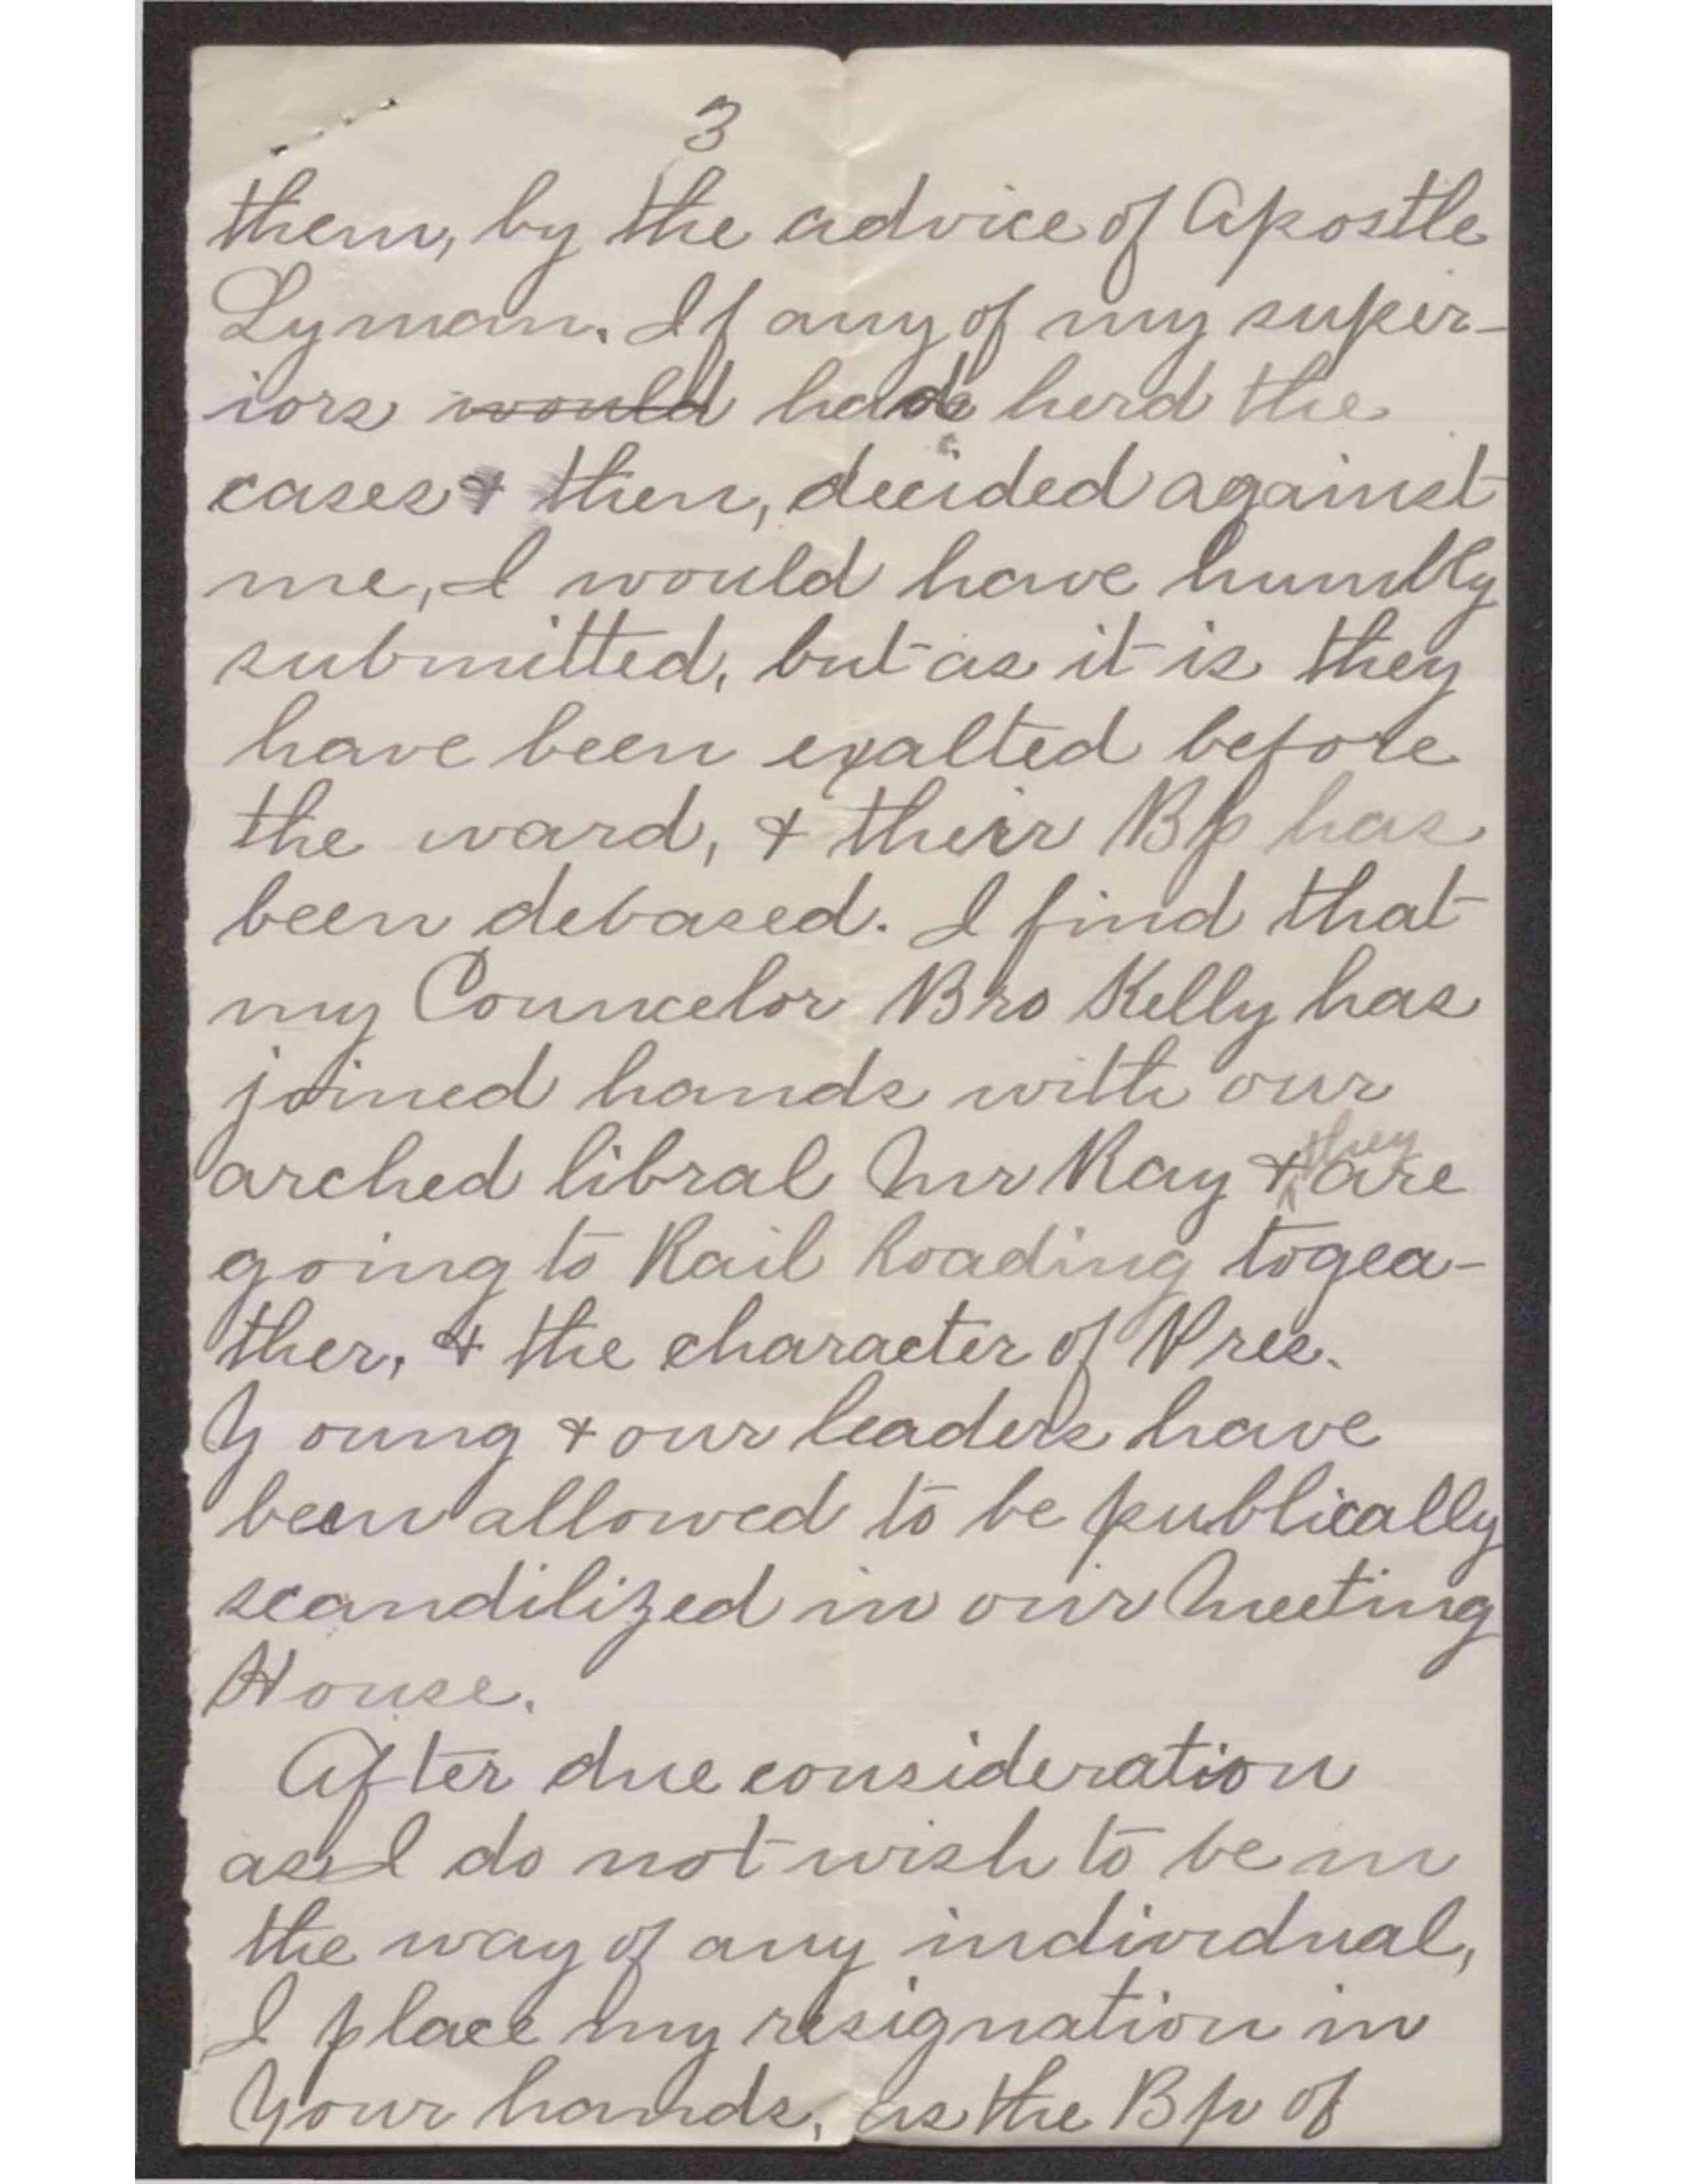 3
them, by the advice of Apostle
Lyman. If any of my super-
iors would had herd the
cases & then, decided against
me, I would have humbly
submitted, but as it is they
have been exalted before
the ward, & their Bp has
been debased. I find that
my Councelor Bro Kelly has
joined hands with our
arched libral Mr Ray & they are
going to Rail Roading togea-
ther, & the character of Pres.
Young & our leaders have
been allowed to be publically
scandilized in our Meeting
House.
After due consideration
as I do not wish to be in
the way of any individual,
I place my resignation in
Your hands, as the Bp of